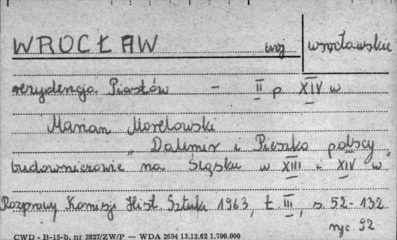 WROCŁAW woj wrocławskie
rezydencja Piastów – II p XIV w
Marian Morelowski
„Dalemir i Pieszko polscy
budowniczowie na Śląsku w XIII i XIV w"
Rozprawy Komisji Hist. Sztuki 1963, t III, s 52-132
ryc 92
CWD - B-15-b, nr 2827/ZW/P — WDA 2694 13.12.62 1.700.000